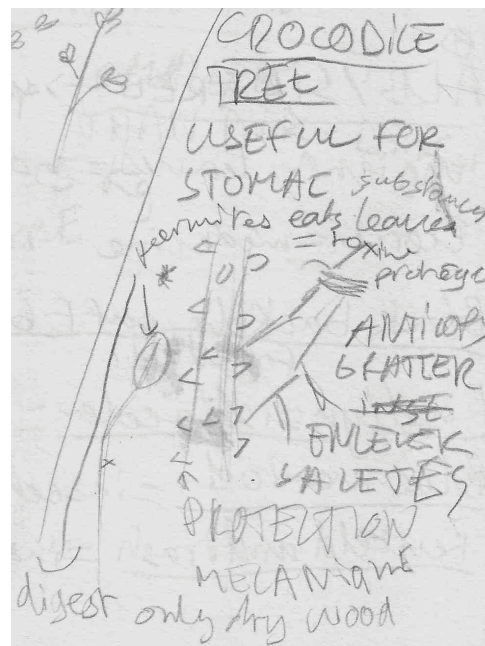 CROCODILE
TREE
USEFUL FOR
STOMAC substances
termites eats leaves
= toxine
protège
GRATTER
ENLEVER
SALETÉS
PROTECTION
MECANIQUE
digest only dry wood